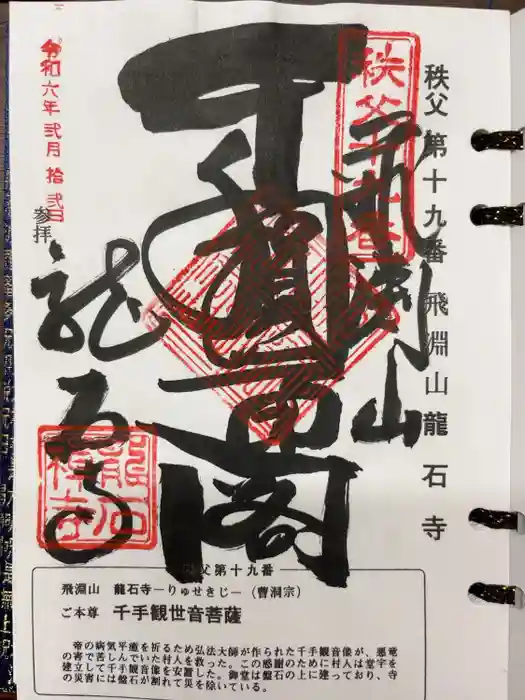 秩父第十九番 飛淵山龍石寺
秩父十九番
飛淵山
千手観音
閣
令和六年弐月拾弐日
参拝
龍石寺
龍石禅寺
秩父第十九番
飛淵山 龍石寺―りゅせきじ―(曹洞宗)
ご本尊 千手観世音菩薩
帝の病気平癒を祈るため弘法大師が作られた千手観音像が、悪竜
の害で苦しんでいた村人を救った。この感謝のために村人は堂宇を
建立して千手観音像を安置した。御堂は盤石の上に建っており、寺
の災害には盤石が割れて災を除いている。